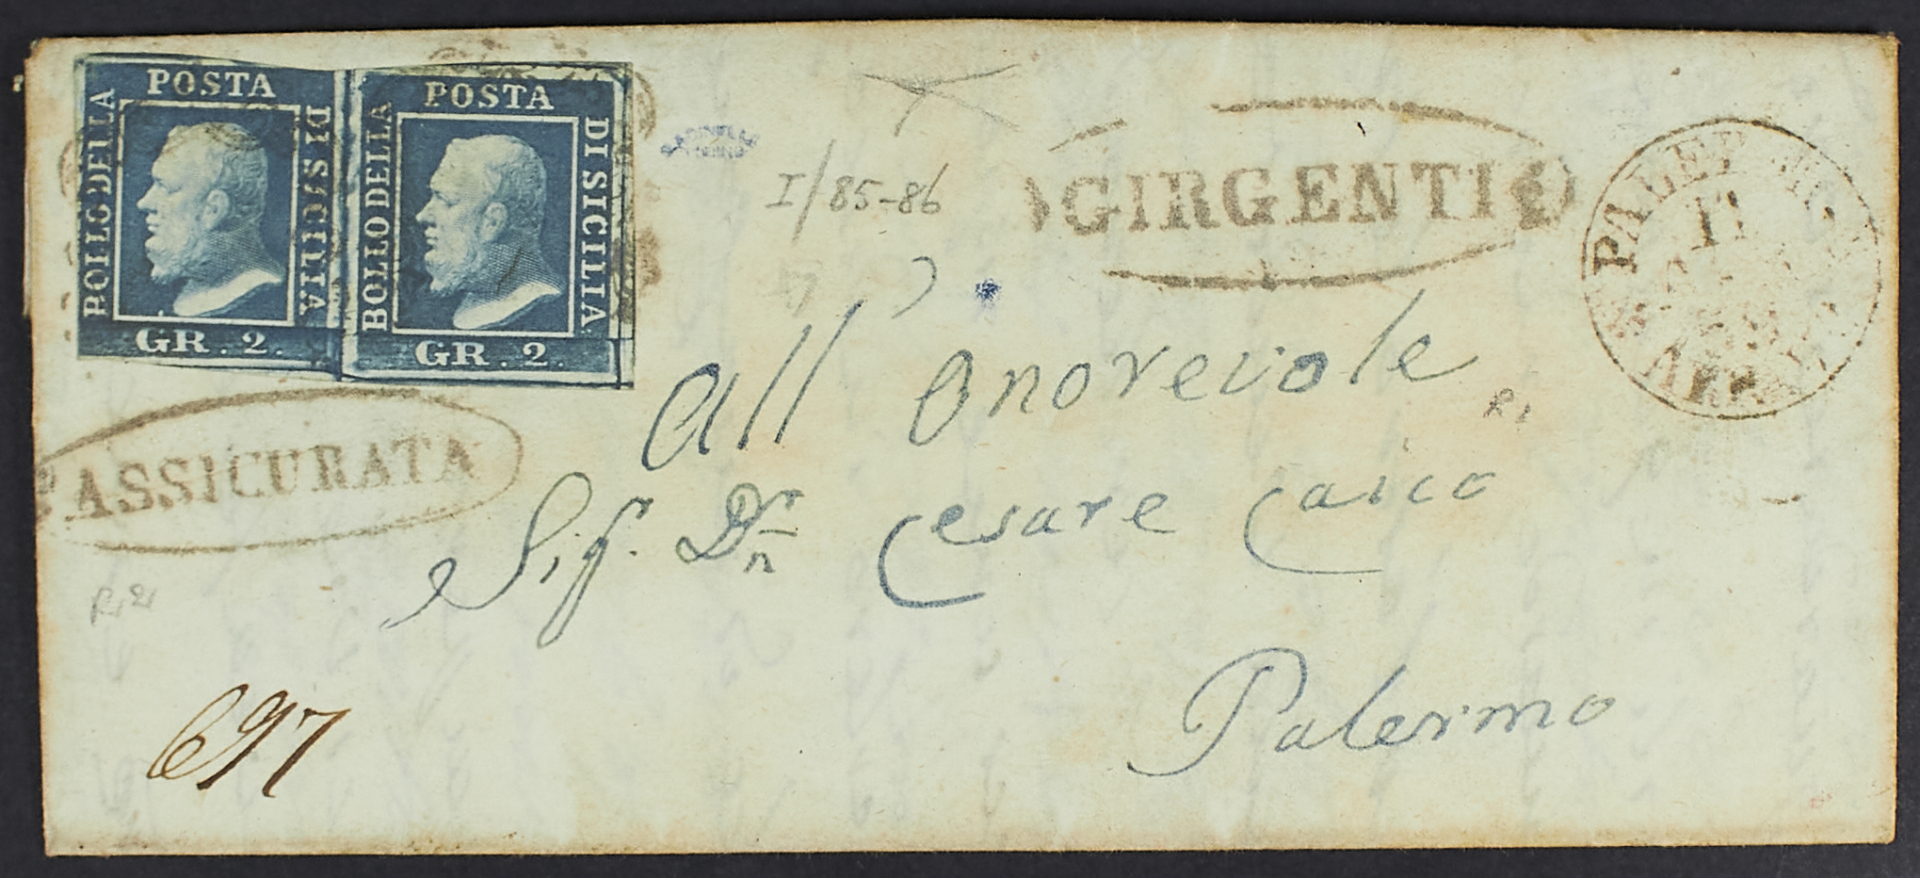 POSTA
BOLLO DELLA
DI SICILIA
GR. 2.
POSTA
BOLLO DELLA
DI SICILIA
GR. 2.
I/85-86
GIRGENTI
11
ASSICURATA
All' Onorevole
R1
Sig.r Dn Cesare Caico
R2
Palermo
697